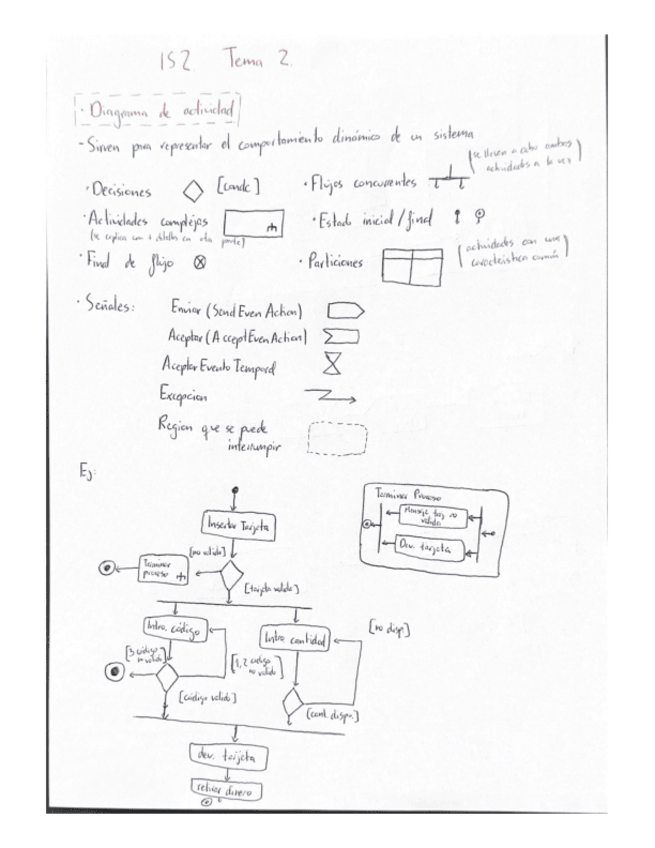 IS2 Tema 2.
· Diagrama de actividad
- Sirven para representar el comportamiento dinámico de un sistema
· Decisiones [condc]
· Flujos concurrentes (se llevan a cabo ambas actividades a la vez)
· Actividades complejas
(se explica con + detalles en otra parte)
· Estado inicial / final
· Final de flujo
· Particiones (actividades con una característica común)
· Señales:
Enviar (Send Even Action)
Aceptar (Accept Even Action)
Aceptar Evento Temporal
Excepcion
Region que se puede
interrumpir
Ej:
Insertar Tarjeta
[no valida]
Terminar
proceso
[tarjeta valida]
Terminar Proceso
Mensaje tarj no
valida
Dev. tarjeta
Intro. código
Intro cantidad
[no disp.]
[3 código
no valido]
[1, 2 codigo
no valido]
[código valido]
[cant. dispn.]
dev. tarjeta
retirar dinero